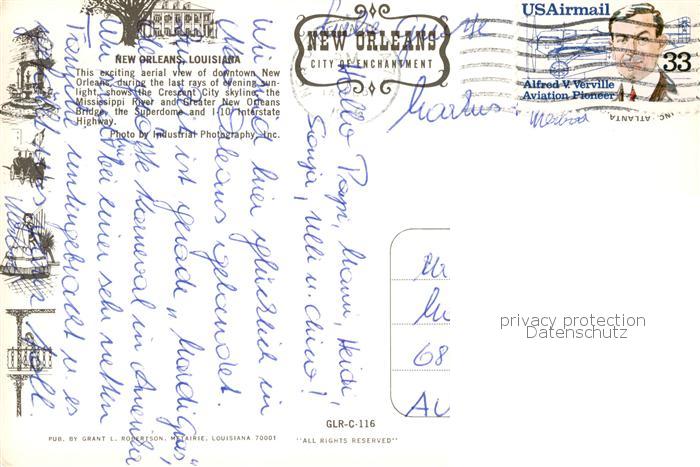 NEW ORLEANS
CITY OF ENCHANTMENT
USAirmail
33
Alfred V. Verville
Aviation Pioneer
INC. ATLANTA
NEW ORLEANS, LOUISIANA
This exciting aerial view of downtown New
Orleans, during the last rays of evening sun-
light, shows the Crescent City skyline, the
Mississippi River and Greater New Orleans
Bridge, the Superdome and I-10 Interstate
Highway.
Photo by Industrial Photography, Inc.
Hallo Papi, Mami, Heidi,
Sonja, Ulli u. Chino!
Wir sind hier glücklich in
New Orleans gelandet.
Hier ist gerade "Mardi gras",
der größte Karneval in Amerika
Wir sind bei einer sehr netten
Familie untergebracht u. es
toll.
68
AU
privacy protection
Datenschutz
GLR-C-116
PUB. BY GRANT L. ROBERTSON, METAIRIE, LOUISIANA 70001
"ALL RIGHTS RESERVED"